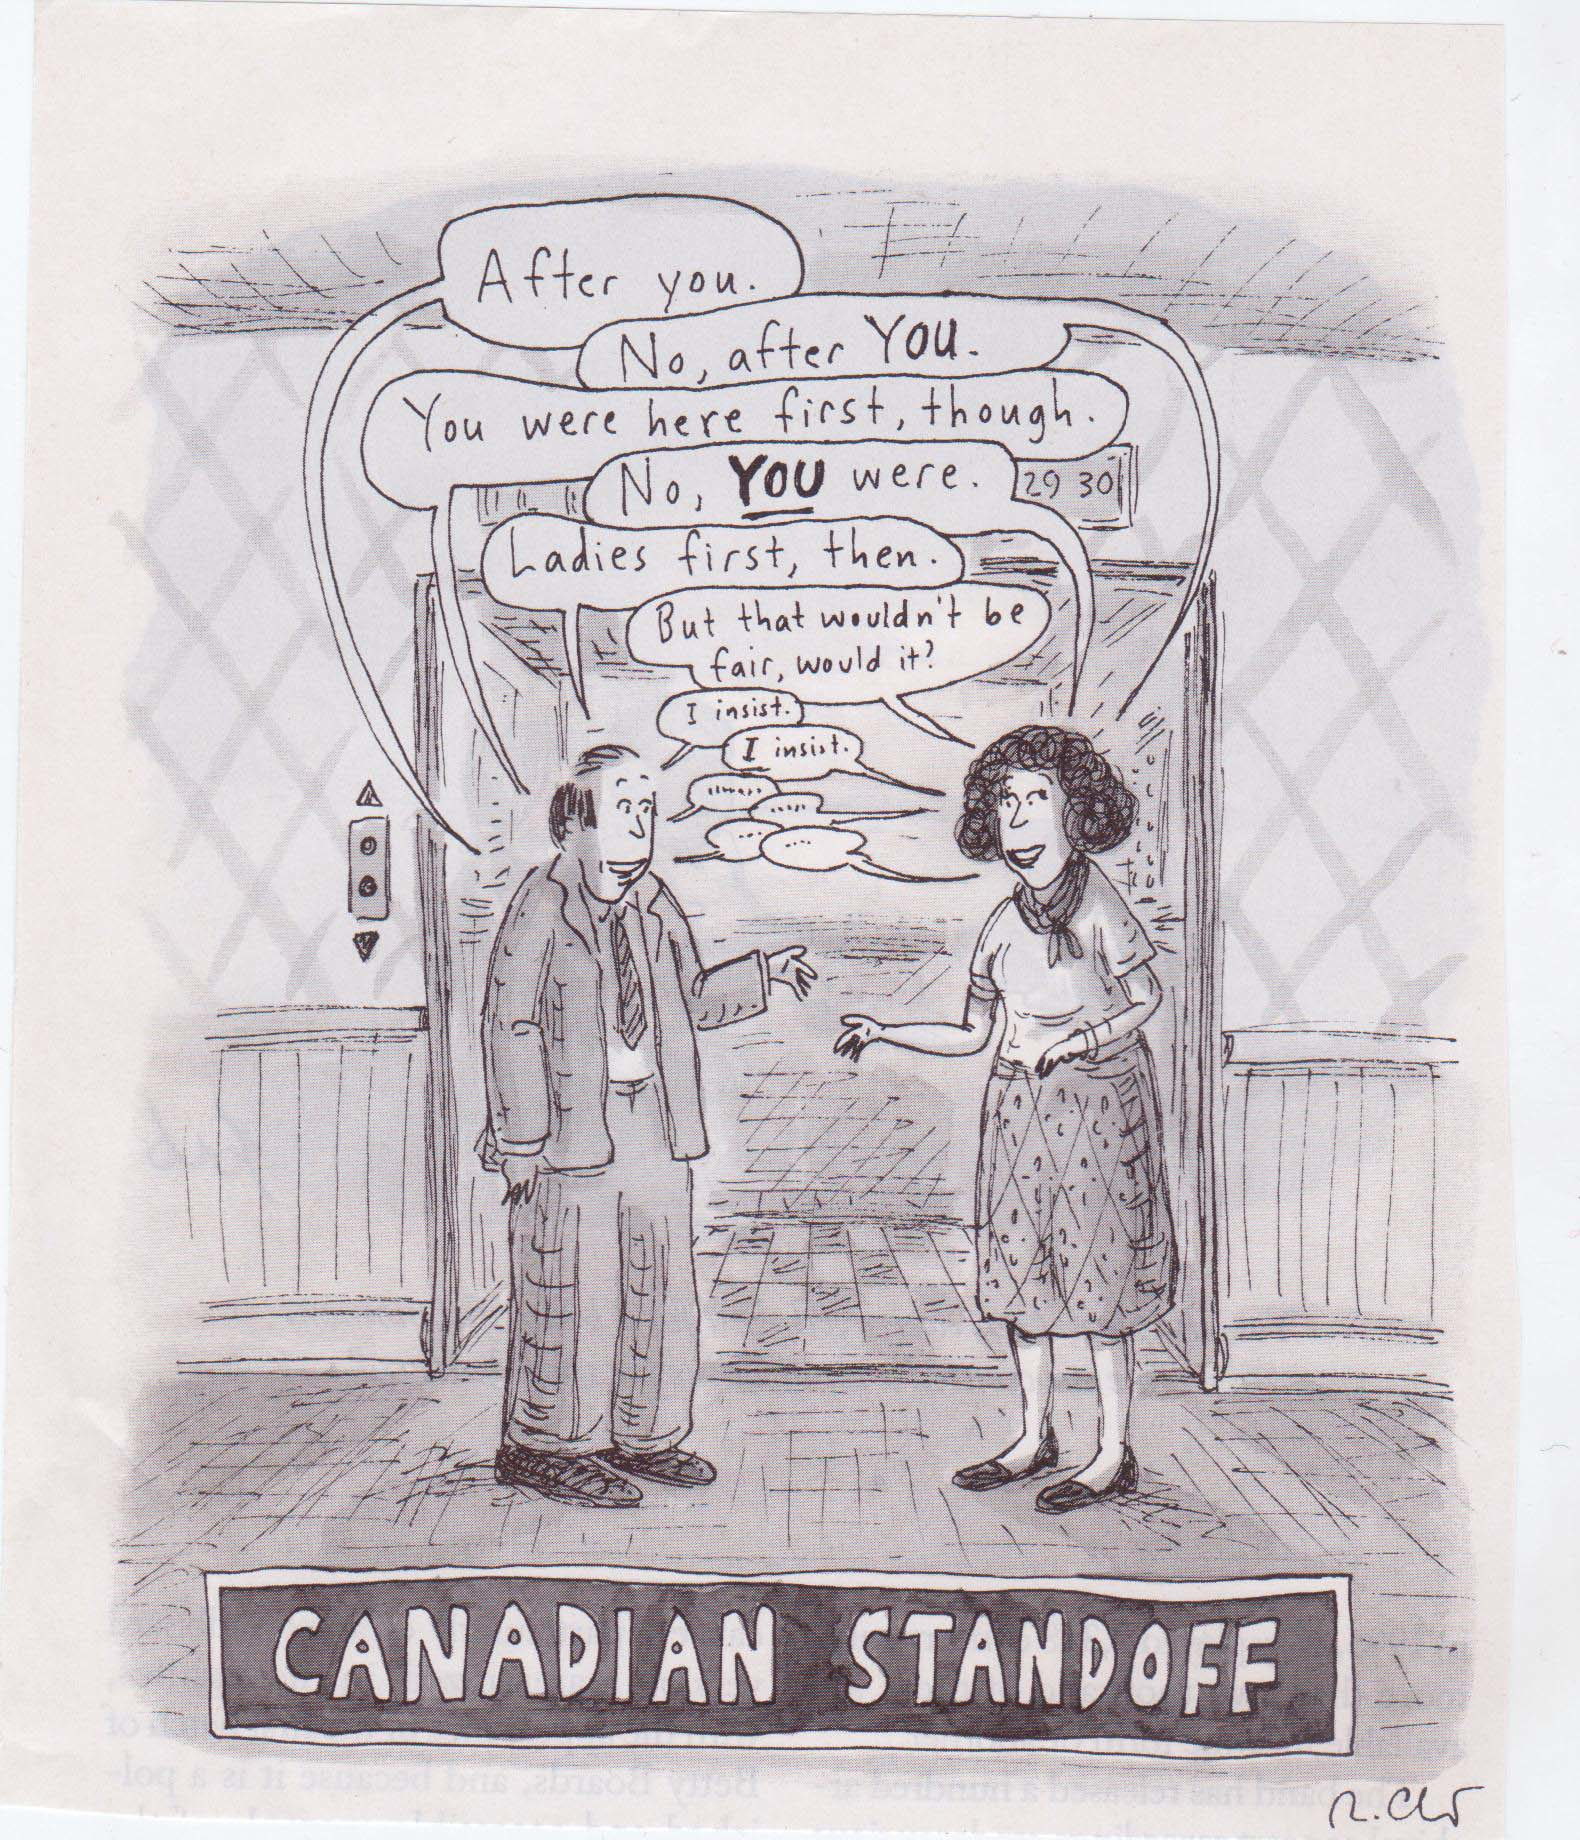 After you.
No, after YOU.
You were here first, though.
No, YOU were.
29 30
Ladies first, then.
But that wouldn't be
fair, would it?
I insist.
I insist.
CANADIAN STANDOFF
R. Chst